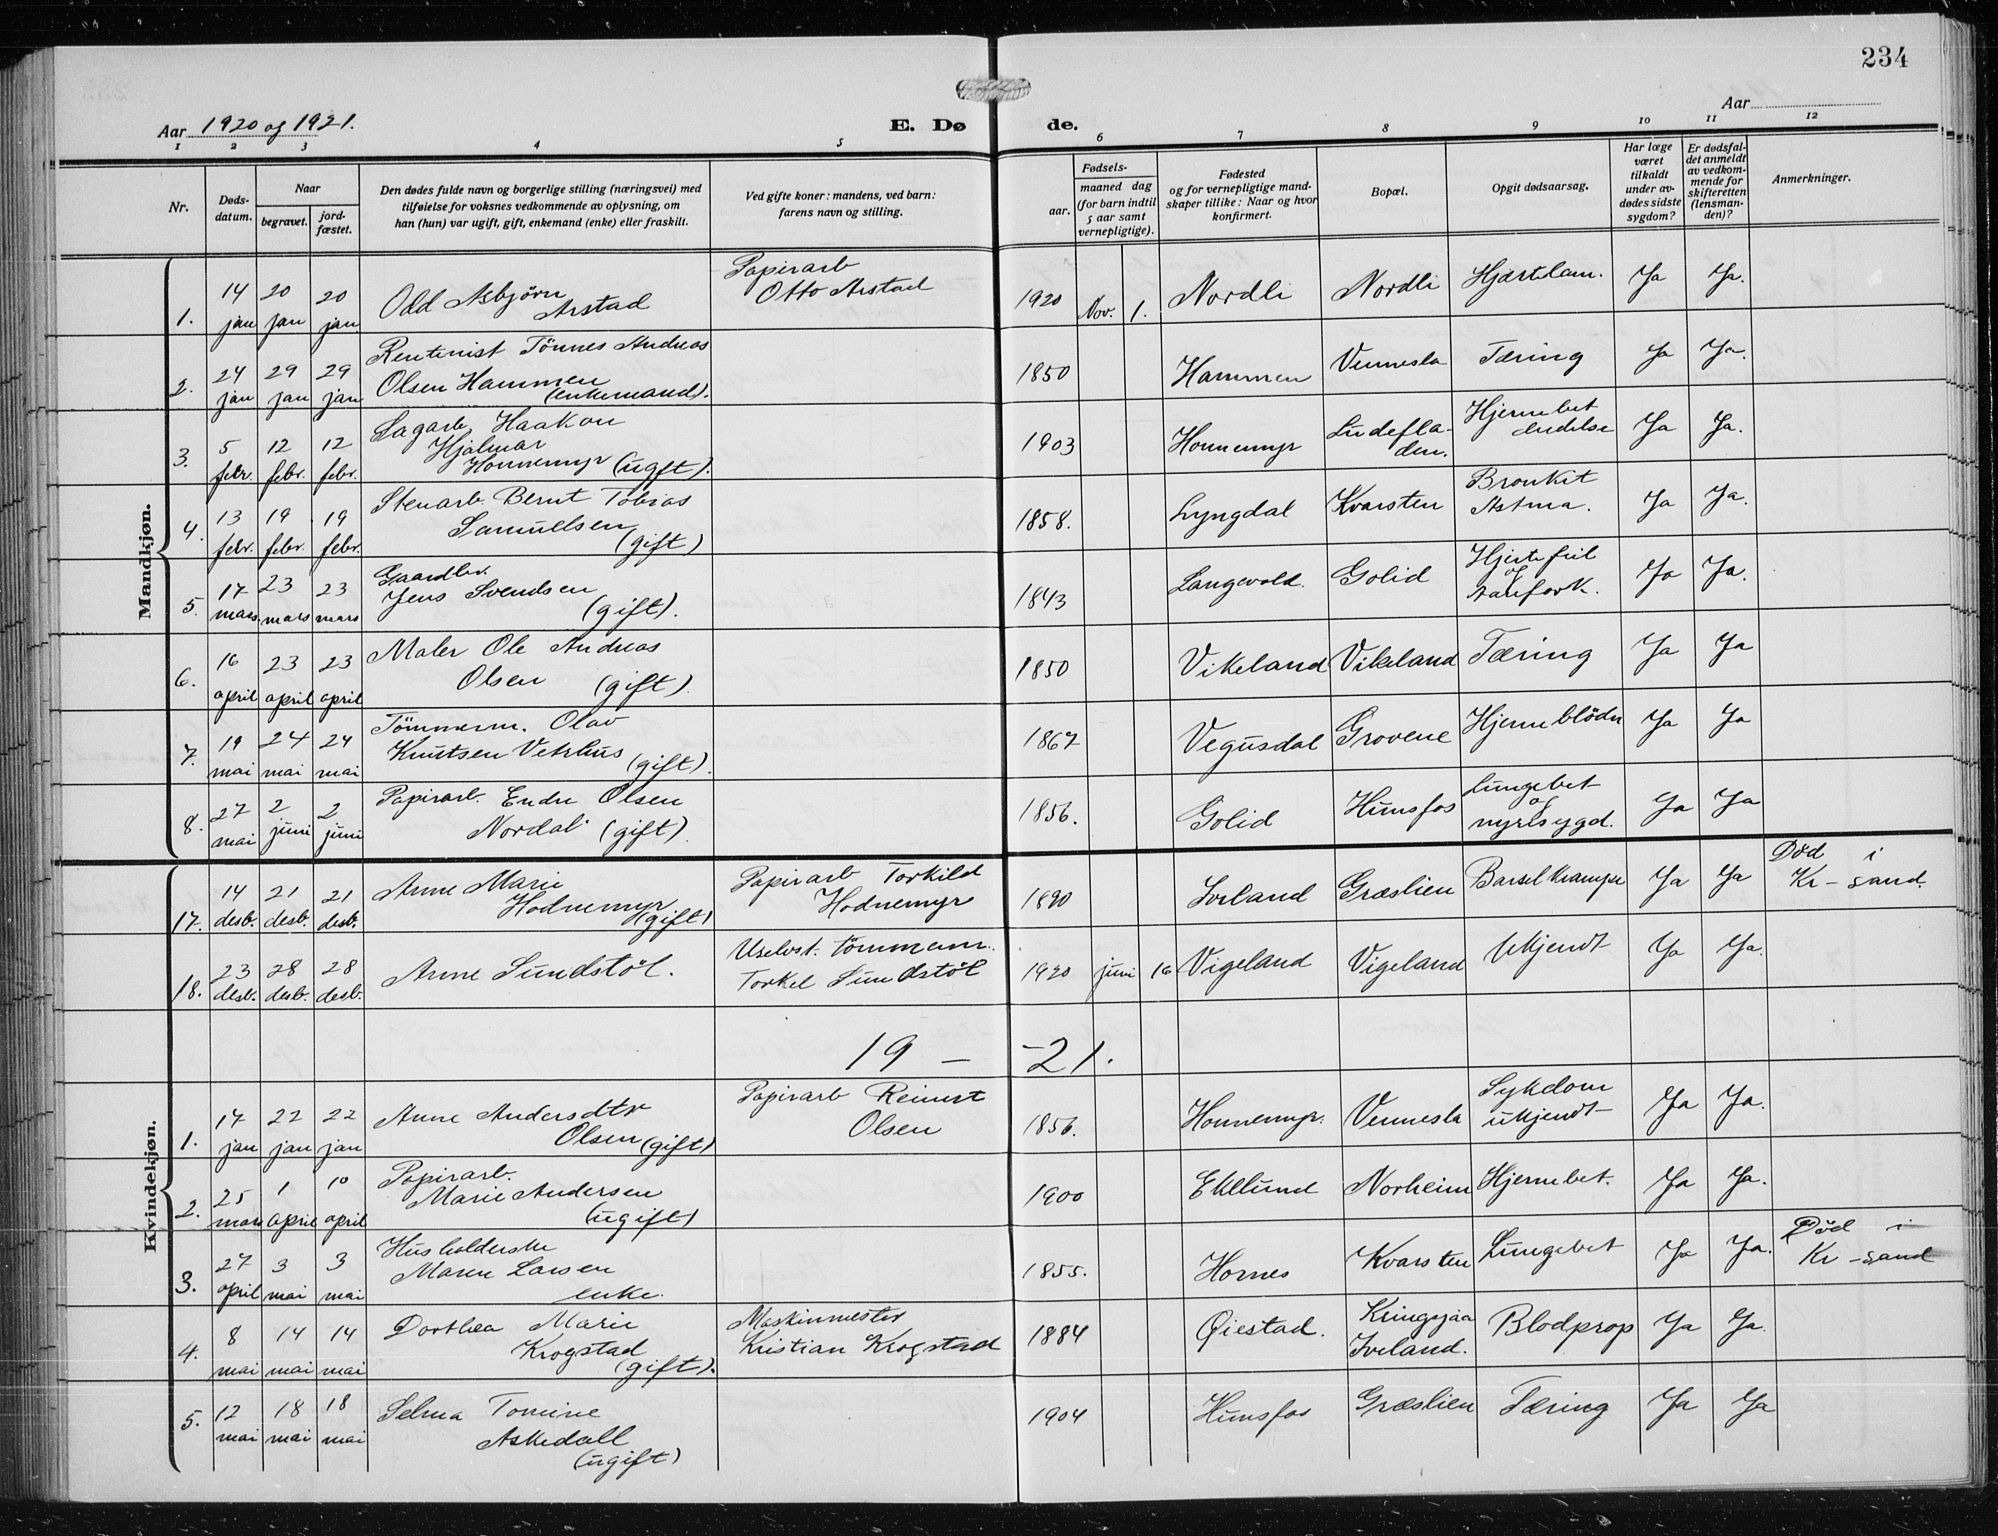 234
Aar 1920 og 1921.
E. Dø de.
Aar
1 2 3 4 5 6 7 8 9 10 11 12
Nr.
Døds-datum.
Naar
begravet.
jord-fæstet.
Den dødes fulde navn og borgerlige stilling (næringsvei) med
tilføielse for voksnes vedkommende av oplysning, om
han (hun) var ugift, gift, enkemand (enke) eller fraskilt.
Ved gifte koner: mandens, ved barn:
farens navn og stilling.
Fødsels-
aar.
maaned dag
(for barn indtil
5 aar samt
vernepligtige).
Fødested
og for vernepligtige mand-
skaper tillike: Naar og hvor
konfirmert.
Bopæl.
Opgit dødsaarsag.
Har læge
været
tilkaldt
under av-
dødes sidste
sygdom?
Er dødsfal-
det anmeldt
av vedkom-
mende for
skifteretten
(lensman-
den)?
Anmerkninger.
Mandkjøn.
1. 14 jan 20 jan 20 jan. Odd Asbjörn Arstad Papirarb Otto Arstad 1920 Nov. 1. Nordli Nordli Hjertelam. Ja Ja.
2. 24 jan 29 jan 29 jan Rentenist Tönnes Andreas Olsen Hammen (enkemand). 1850 Hammen Vennesla Tæring Ja Ja.
3. 5 febr. 12 febr. 12 febr. Sagarb. Haakon Hjalmar Honnemyr (ugft). 1903 Honnemyr Lindefla-den. Hjernebet ændelse Ja Ja.
4. 13 febr. 19 febr. 19 febr. Stenarb. Bernt Tobias Samuelsen (gift) 1858. Lyngdal Kvarsten Bronkit Astma. Ja Ja.
5. 17 mars. 23 mars 23 mars Gaardbr. Jens Svendsen (gift). 1843 Langevold. Golid Hjertefeil og Ja Ja.
6. 16 april 23 april 23 april Maler Ole Andreas Olsen (gift). 1850 Vikeland Vikeland Tæring Ja Ja
7. 19 mai 24 mai 24 mai Tömmerm. Olav Knutsen Vetrhus (gift). 1867 Vegusdal Grovene Hjerneblödn Ja Ja
8. 27 mai 2 juni 2 juni Papirarb. Endre Olsen Nordal (gift). 1856. Golid Hunsfos Lungebet og nyresygd. Ja Ja
Kvindekjøn.
17. 14 desb. 21 desb. 21 desb. Anne Marie Hodnemyr (gift) Papirarb Torkild Hodnemyr 1890 Iveland Græslien Barselkrampe Ja Ja Död i Kr-sand.
18. 23 desb. 28 desb. 28 desb. Anne Sundstöl. Uselvst. tömmerm. Torkel Sundstöl 1920 juni 16 Vigeland Vigeland Ukjendt Ja Ja.
19 - -21.
1. 17 jan 22 jan 22 jan Anne Andersdtr Olsen (gift) Papirarb Reinert Olsen 1856. Honnemyr. Vennesla Sykdom ukjendt- Ja Ja.
2. 25 mars 1 april 10 april Papirarb. Marie Andersen (ugift) 1900 Eklund Norheim Hjernebet. Ja Ja.
3. 27 april 3 mai 3 mai Husholderske Maren Larsen enke. 1855. Hornes Kvarsten Lungebet Ja Ja. Död i Kr-sand
4. 8 mai 14 mai 14 mai Dorthea Marie Krogstad (gift). Maskinmester Kristian Krogstad 1884 Øiestad. Kringsjaa Iveland. Blodprop Ja Ja.
5. 12 mai 18 mai 18 mai Selma Tomine Askedall (ugift) 1904 Hunsfos Græslien Tæring Ja Ja